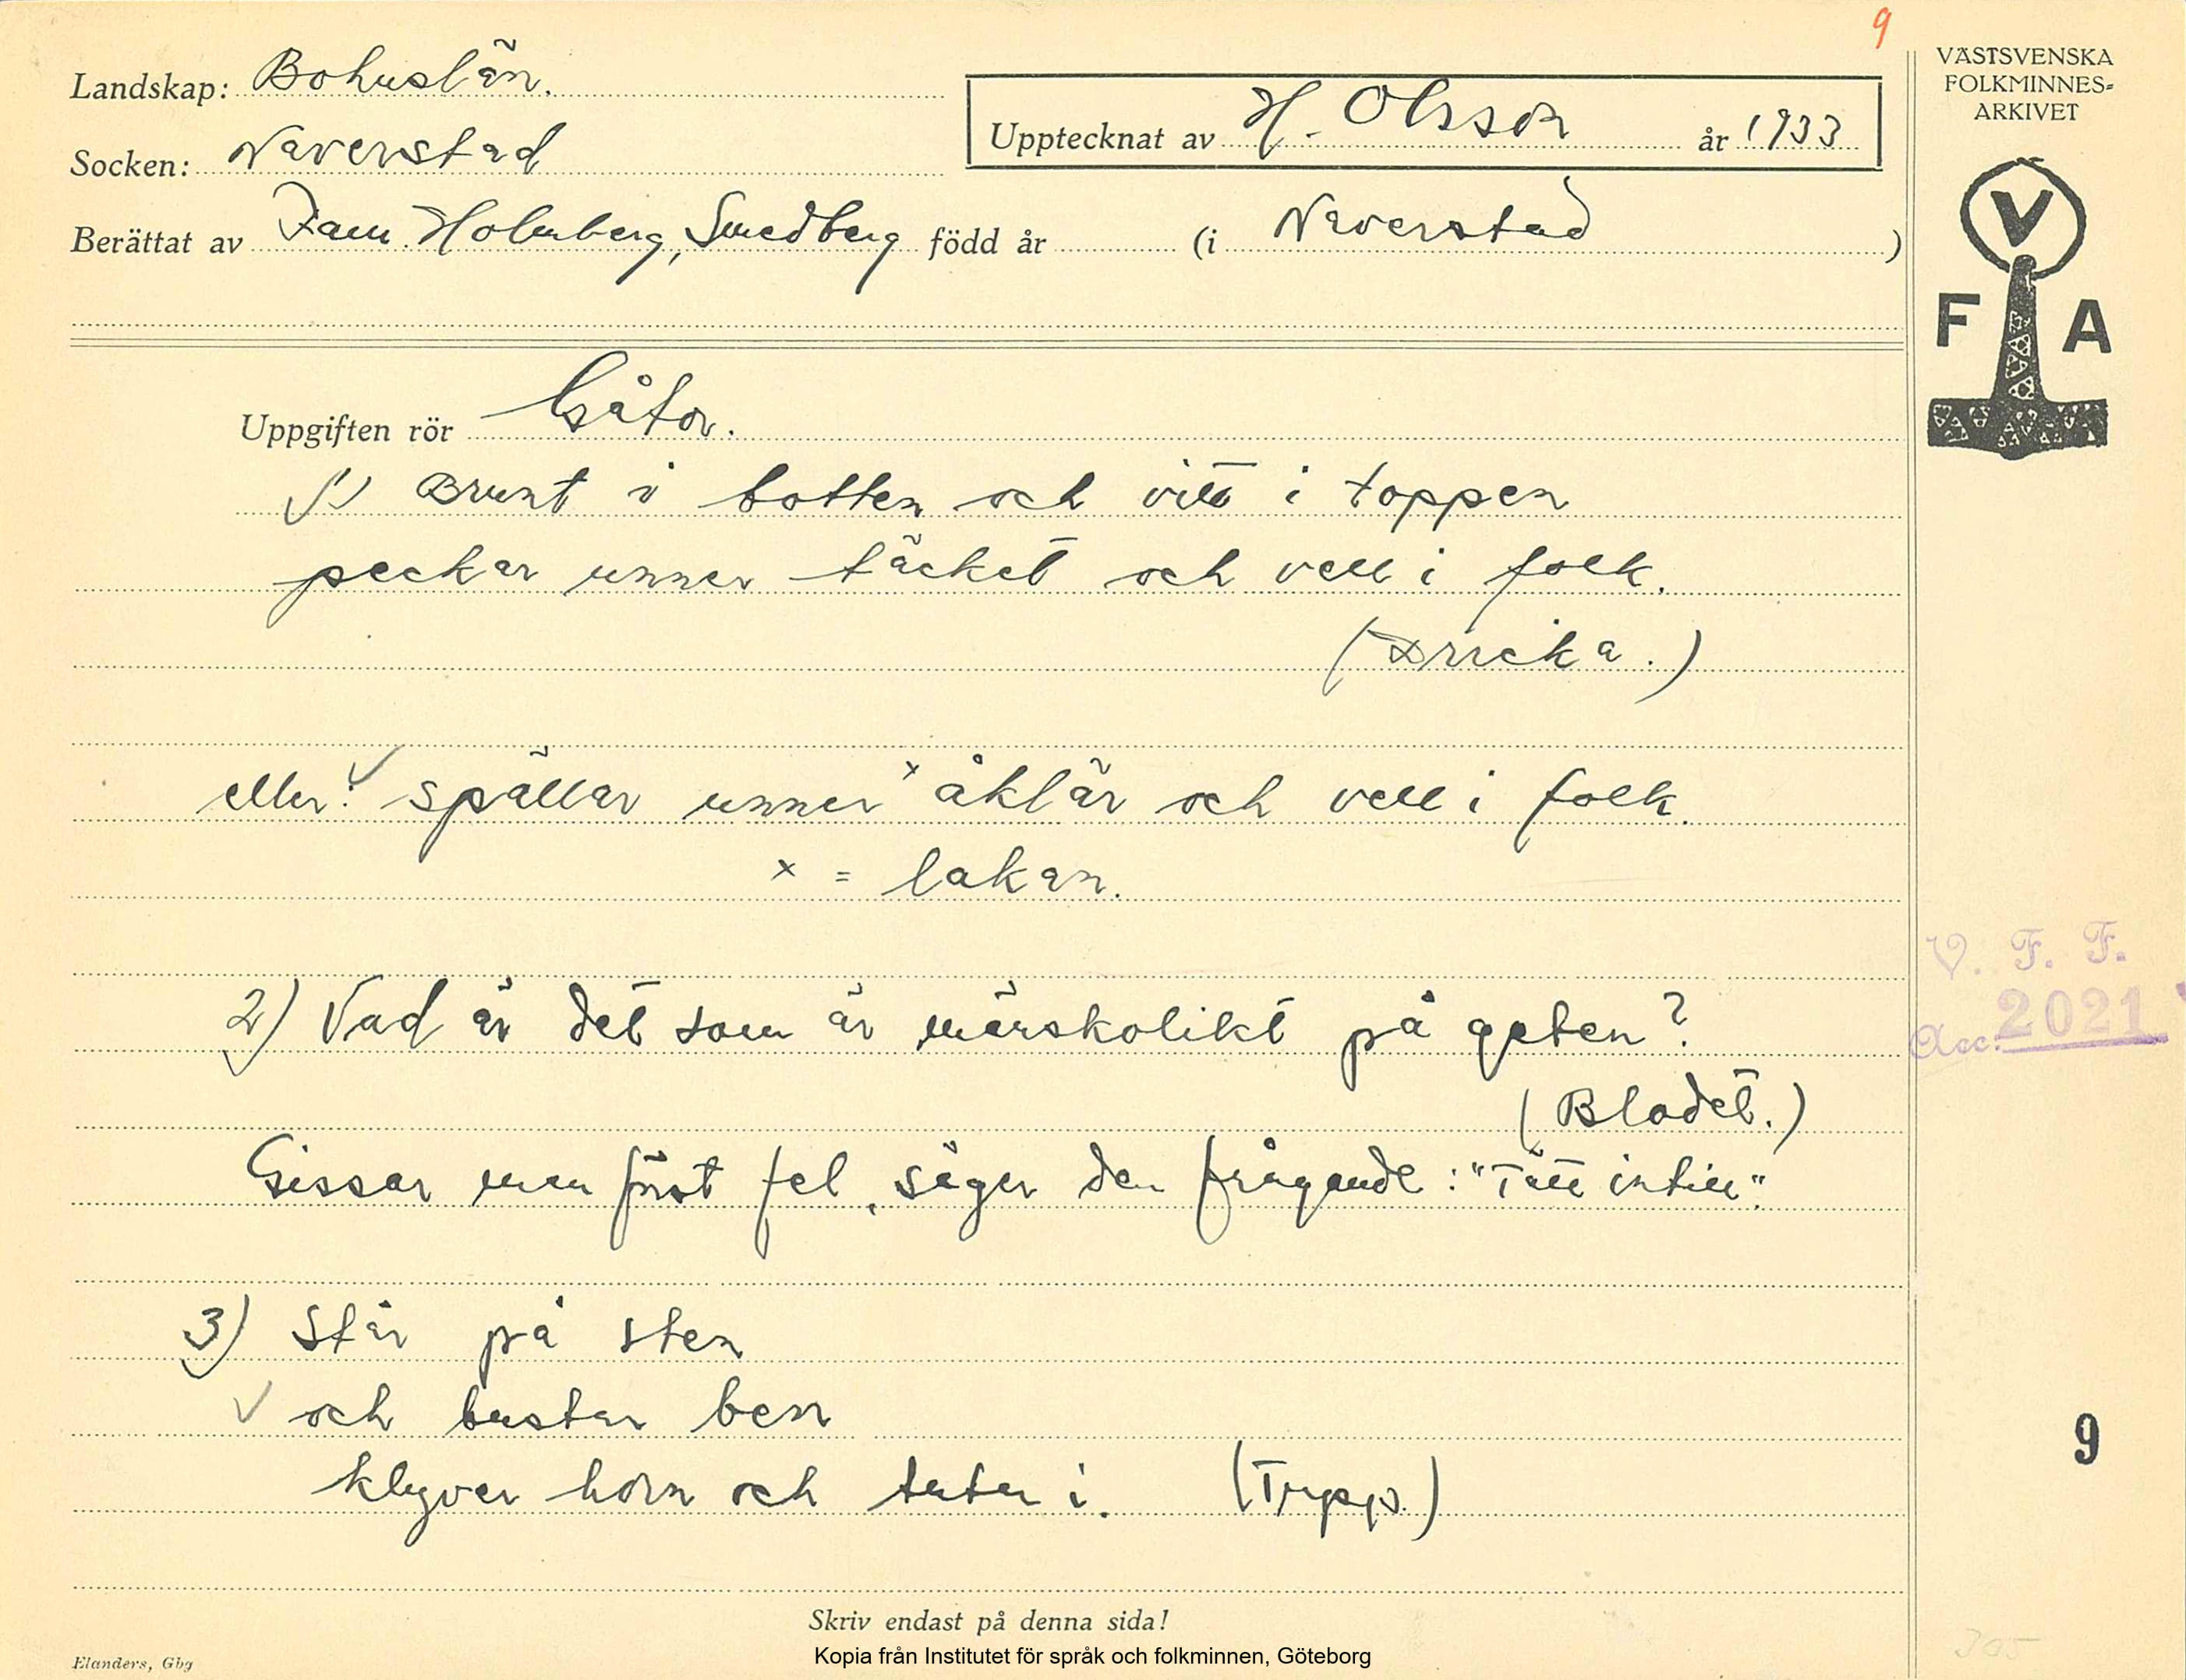 9
Landskap: Bohuslän.
Upptecknat av H. Olsson år 1933
Socken: Naverstad
Berättat av Fam. Holmberg, Smedberg född år (i Naverstad )
VÄSTSVENSKA
FOLKMINNES-
ARKIVET
V
F A
Uppgiften rör Gåtor.
1) Brunt i botten och vitt i toppen
peckar unner täcket och vell i folk.
(Dricka.)
eller: spällar unner x åklär och vell i folk.
x = lakan.
2) Vad är det som är märskolikt på geten?
(Bladet.)
Gissar man först fel, säger den frågande: "Tätt intill".
3) Står på sten
och bustar ben
klyver horn och tutar i. (Tupp.)
V. F. F.
Acc. 2021
9
Skriv endast på denna sida!
Kopia från Institutet för språk och folkminnen, Göteborg
Elanders, Gbg